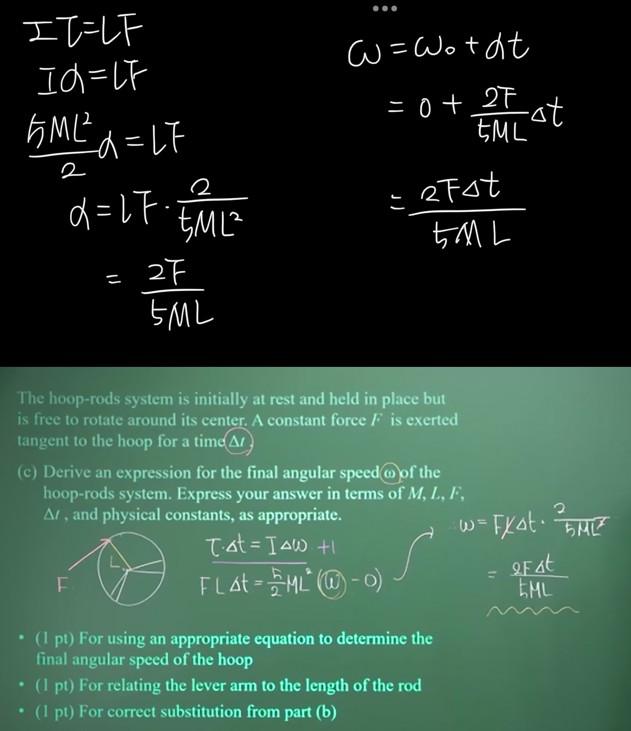 Iτ=LF
Iα=LF
5ML²/2 α=LF
α=LF·2/5ML²
= 2F/5ML
ω=ω₀+αt
= 0 + 2F/5ML Δt
= 2FΔt/5ML
The hoop-rods system is initially at rest and held in place but
is free to rotate around its center. A constant force F is exerted
tangent to the hoop for a time Δt.
(c) Derive an expression for the final angular speed ω of the
hoop-rods system. Express your answer in terms of M, L, F,
Δt, and physical constants, as appropriate.
F
L
τ·Δt = IΔω +1
FLΔt = 5/2 ML² (ω - 0)
ω = FLΔt · 2/5ML²
= 2FΔt/5ML
• (1 pt) For using an appropriate equation to determine the
final angular speed of the hoop
• (1 pt) For relating the lever arm to the length of the rod
• (1 pt) For correct substitution from part (b)